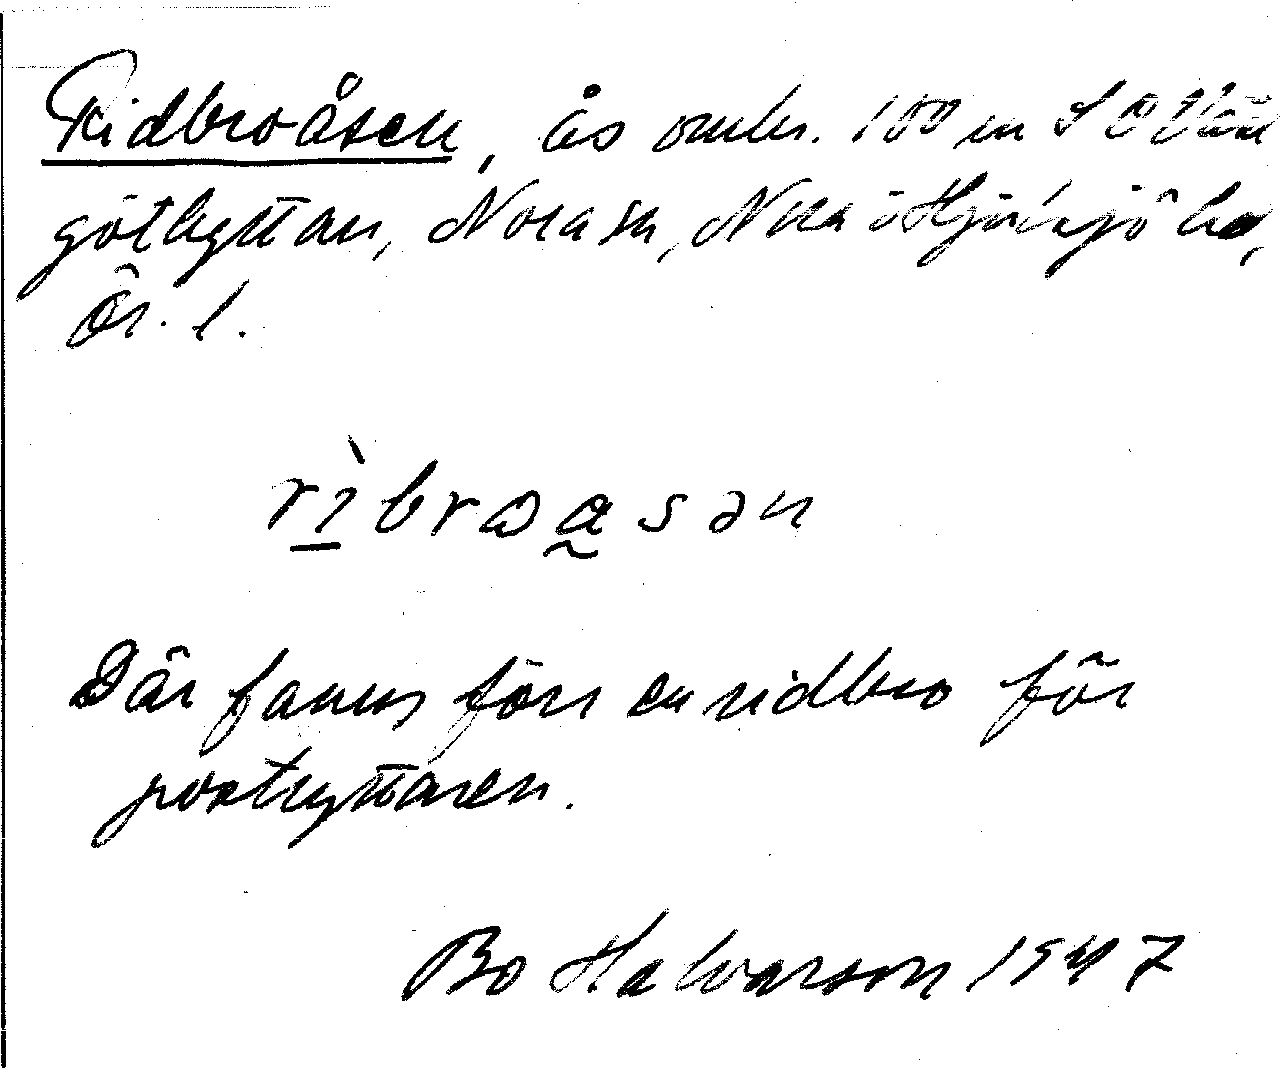 Ridbroåsen, ås omkr. 100 m S O Vän
göthyttan, Nora sn, Nora o Hjulsjö bd,
Ör. l.
rìbroɑsən
Där fanns förr en ridbro för
postryttaren.
Bo Halvarson 1947